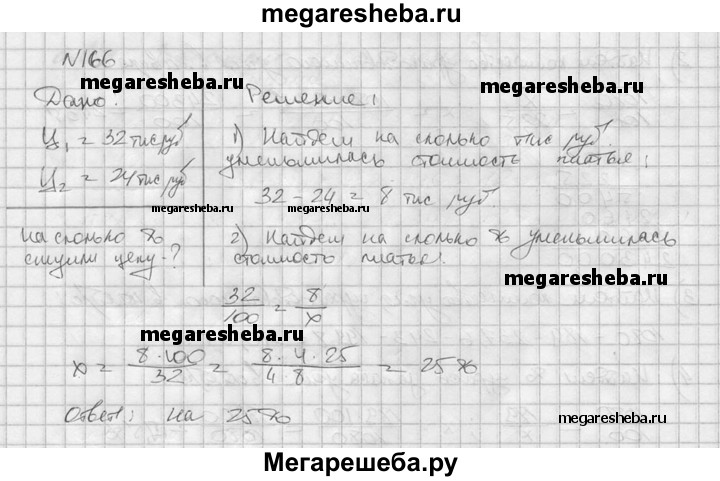 megaresheba.ru
N166
megaresheba.ru
Дано:
Решение:
Ц₁ = 32 тыс руб
Ц₂ = 24 тыс руб
на сколько %
снизили цену - ?
1) Найдем на сколько тыс руб.
уменьшилась стоимость платья:
32 - 24 = 8 тыс руб.
megaresheba.ru
megaresheba.ru
megaresheba.ru
2) Найдем на сколько % уменьшилась
стоимость платья:
megaresheba.ru
32/100 = 8/x
megaresheba.ru
x = 8·100/32 = 8·4·25/4·8 = 25%
Ответ: на 25%
megaresheba.ru
Мегарешеба.ру